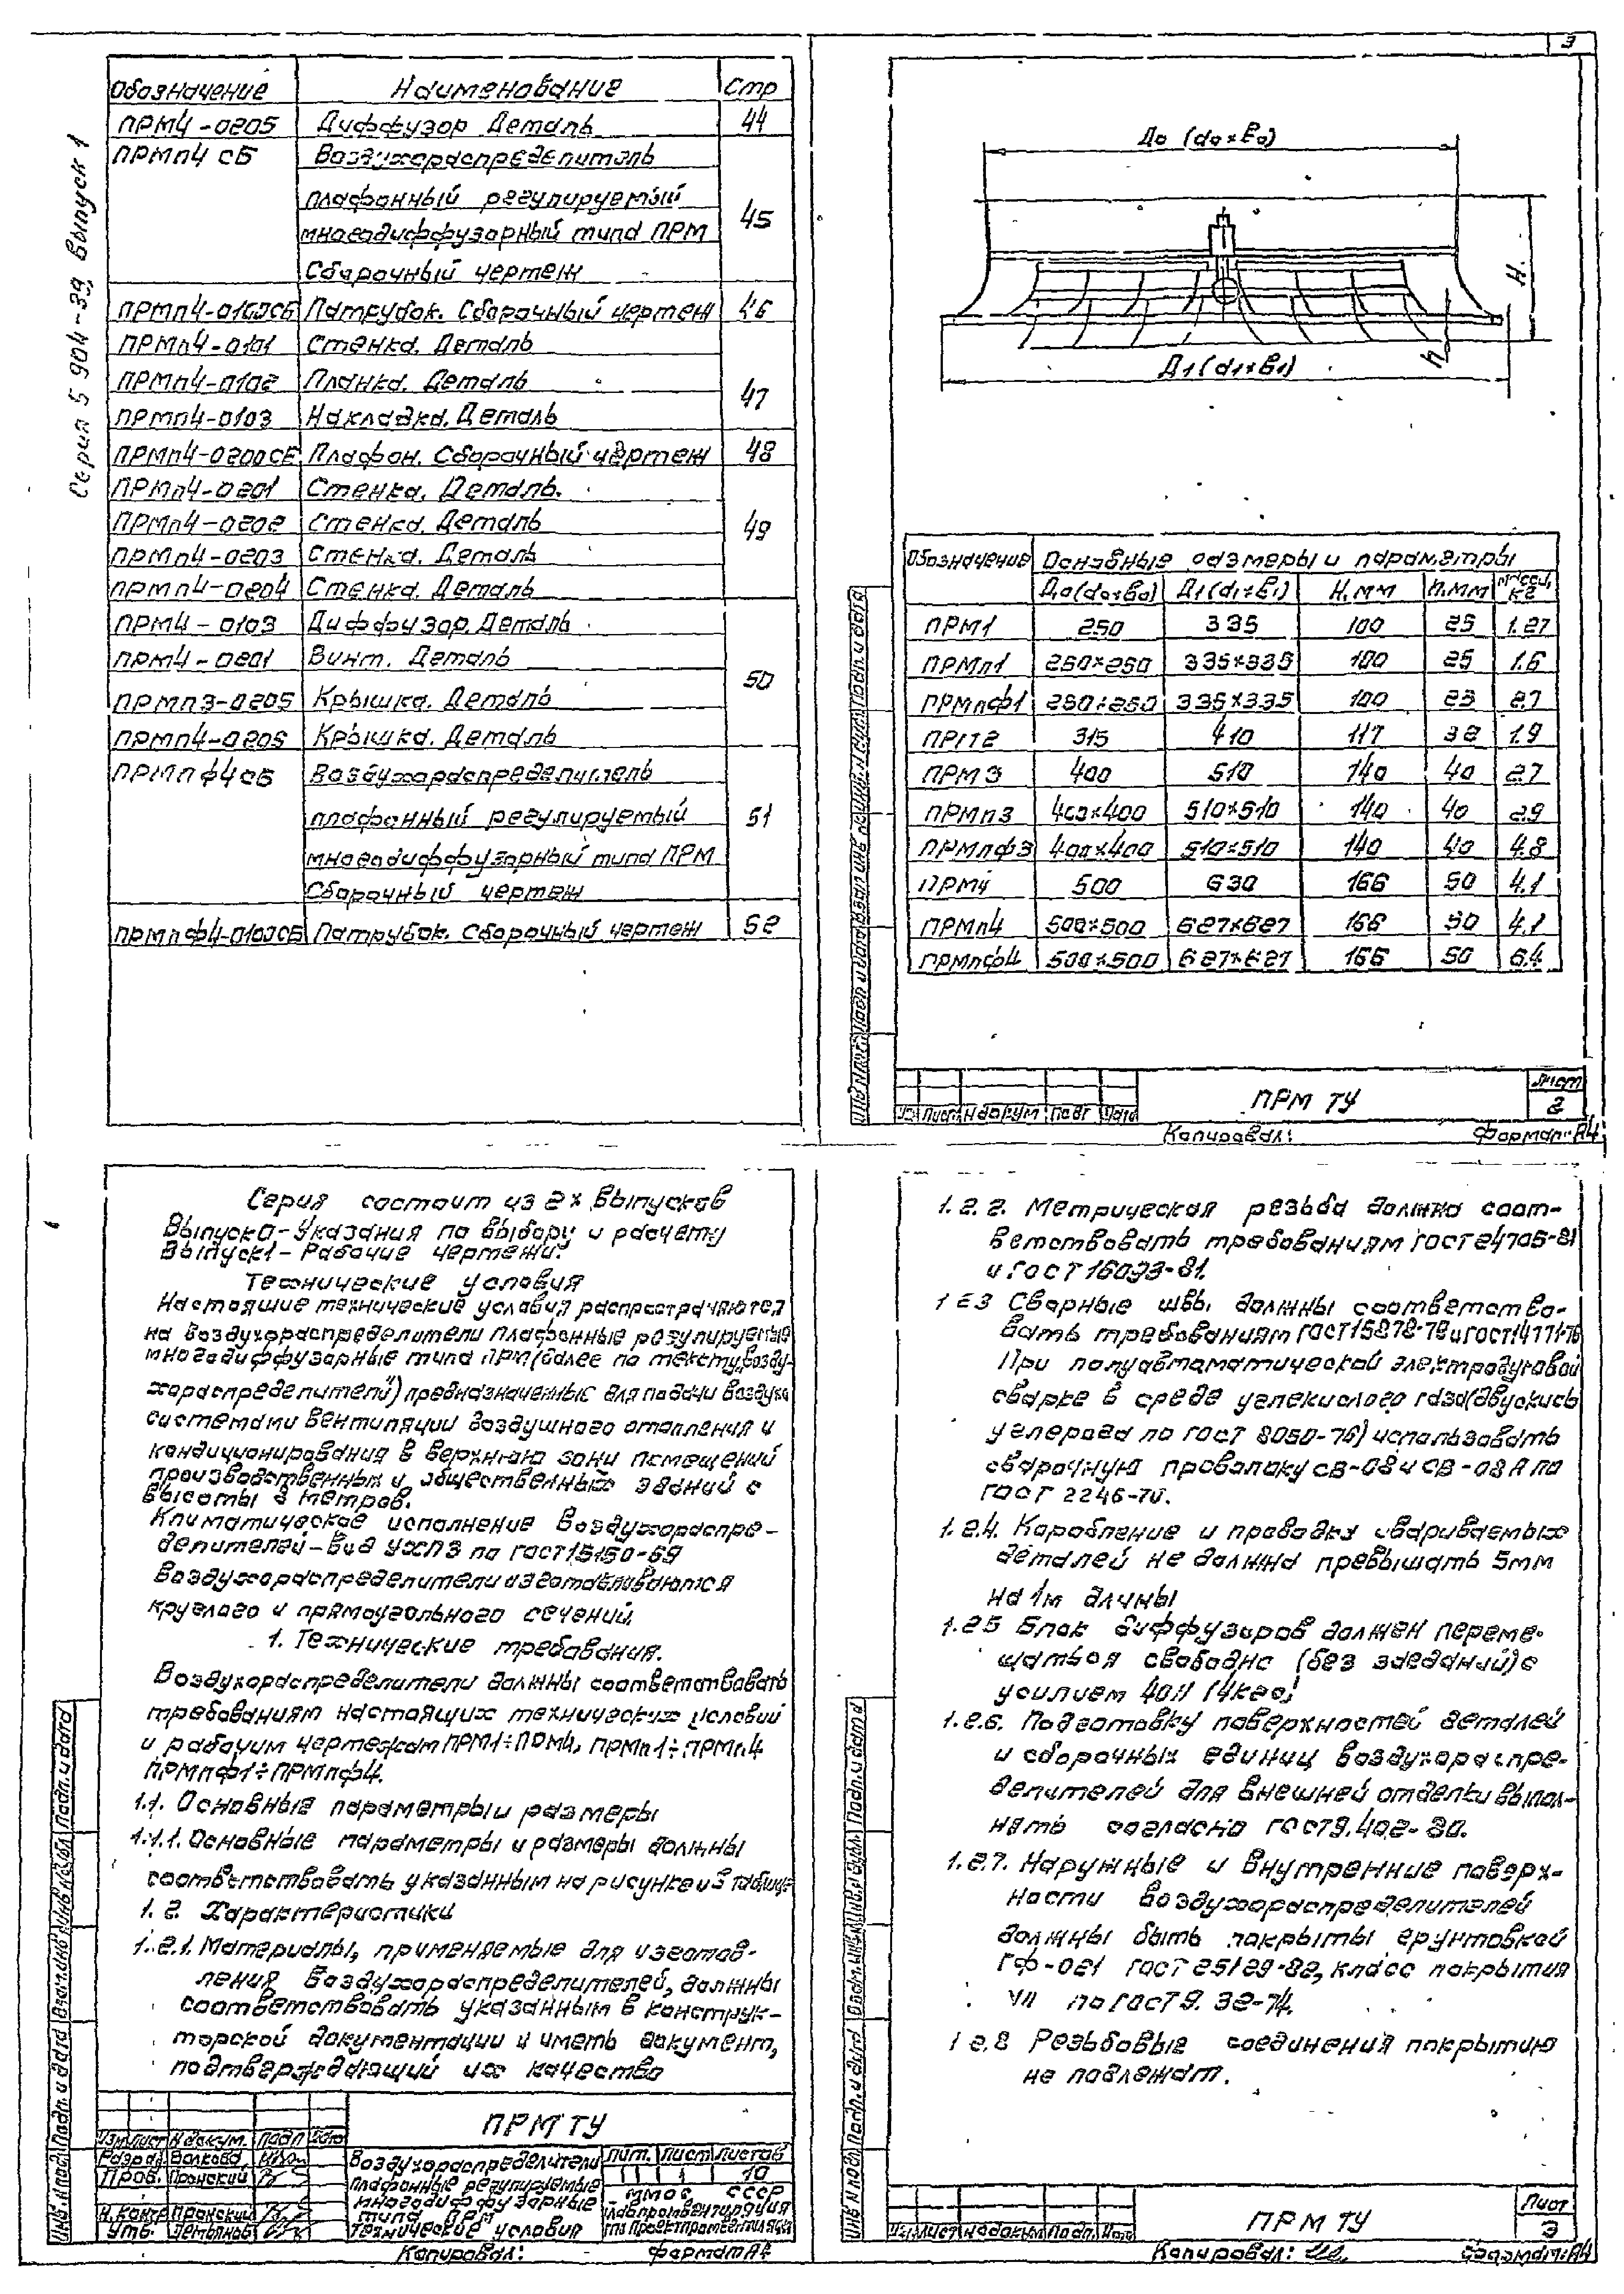 Серия 5 904-39 Выпуск 1
Обозначение Наименование Стр
ПРМ4-0205 Диффузор Деталь 44
ПРМп4 СБ Воздухораспределитель
плафонный регулируемый
многодиффузорный типа ПРМ 45
Сборочный чертеж
ПРМп4-0100СБ Патрубок. Сборочный чертеж 46
ПРМп4-0101 Стенка. Деталь
ПРМп4-0102 Планка. Деталь 47
ПРМп4-0103 Накладка. Деталь
ПРМп4-0200СБ Плафон. Сборочный чертеж 48
ПРМп4-0201 Стенка. Деталь.
ПРМп4-0202 Стенка. Деталь 49
ПРМп4-0203 Стенка. Деталь
ПРМп4-0204 Стенка. Деталь
ПРМ4-0103 Диффузор. Деталь
ПРМ4-0201 Винт. Деталь 50
ПРМп3-0205 Крышка. Деталь
ПРМп4-0205 Крышка. Деталь
ПРМпф4СБ Воздухораспределитель
плафонный регулируемый 51
многодиффузорный типа ПРМ
Сборочный чертеж
ПРМпф4-0100СБ Патрубок. Сборочный чертеж 52
3
До (do×Bo)
H.
h
Д1 (d1×B1)
Обозначение Основные размеры и параметры
До(do×Bo) Д1(d1×B1) H.мм h.мм масса, кг
ПРМ1 250 335 100 25 1.27
ПРМп1 250×250 335×335 100 25 1.6
ПРМпф1 250×250 335×335 100 25 2.7
ПРМ2 315 410 117 32 1.9
ПРМ3 400 510 140 40 2.7
ПРМп3 400×400 510×510 140 40 2.9
ПРМпф3 400×400 510×510 140 40 4.8
ПРМ4 500 630 166 50 4.1
ПРМп4 500×500 627×627 166 50 4.1
ПРМпф4 500×500 627×627 166 50 6.4
Инв. N подл Подп. и дата Взам. инв. Инв. N дубл. Подп. и дата
Изм Лист N докум Подп Дата
ПРМ ТУ
Лист
2
Копировал: Формат А4
Серия состоит из 2х Выпусков
Выпуск0-Указания по выбору и расчету
Выпуск1-Рабочие чертежи.
Технические условия
Настоящие технические условия распространяются
на воздухораспределители плафонные регулируемые
многодиффузорные типа ПРМ(далее по тексту„возду-
хораспределители") предназначенные для подачи воздуха
системами вентиляции воздушного отопления и
кондиционирования в верхнюю зону помещений
производственных и общественных зданий с
высоты 3 метров.
Климатическое исполнение воздухораспре-
делителей-вид УХЛ3 по ГОСТ15150-69
Воздухораспределители изготавливаются
круглого и прямоугольного сечений.
1. Технические требования.
Воздухораспределители должны соответствовать
требованиям настоящих технических условий
и рабочим чертежам ПРМ1÷ПРМ4, ПРМп1÷ПРМп4
ПРМпф1÷ПРМпф4.
1.1. Основные параметры и размеры
1.1.1. Основные параметры и размеры должны
соответствовать указанным на рисунке и в таблице
1. 2. Характеристики
1.2.1. Материалы, применяемые для изготов-
ления воздухораспределителей, должны
соответствовать указанным в конструк-
торской документации и иметь документ,
подтверждающий их качество
Инв. N подл Подп. и дата Взам. инв. Инв. N дубл Подп. и дата
ПРМ ТУ
Изм Лист N докум. Подп Дата
Разраб Волкова
Пров. Пронский
Н.контр Пронский
Утв.
Воздухораспределители
плафонные регулируемые
многодиффузорные
типа ПРМ
Технические условия
Лит. Лист Листов
1 10
ММСС СССР
Главпромвентиляция
Копировал: Формат А4
1.2.2. Метрическая резьба должна соот-
ветствовать требованиям ГОСТ24705-81
и ГОСТ16093-81.
1 2 3 Сварные швы должны соответство-
вать требованиям ГОСТ15878-79 и ГОСТ14771-76
При полуавтоматической электродуговой
сварке в среде углекислого газа(двуокись
углерода по ГОСТ 8050-76) использовать
сварочную проволоку СВ-08 и СВ-08А по
ГОСТ 2246-70.
1.2.4. Коробление и поводка свариваемых
деталей не должна превышать 5мм
на 1м длины
1.2.5 Блок диффузоров должен переме-
щаться свободно (без заеданий) с
усилием 40Н (4кгс)
1.2.6. Подготовку поверхностей деталей
и сборочных единиц воздухораспре-
делителей для внешней отделки выпол-
нять согласно ГОСТ9.402-80.
1.2.7. Наружные и внутренние поверх-
ности воздухораспределителей
должны быть покрыты грунтовкой
ГФ-021 ГОСТ 25129-82, класс покрытия
VII по ГОСТ 9. 32-74.
1 2.8 Резьбовые соединения покрытию
не подлежат.
Инв. N подл Подп. и дата Взам. инв. Инв. N дубл. Подп. и дата
Изм Лист N докум Подп. Дата
ПРМ ТУ
Лист
3
Копировал: Формат А4